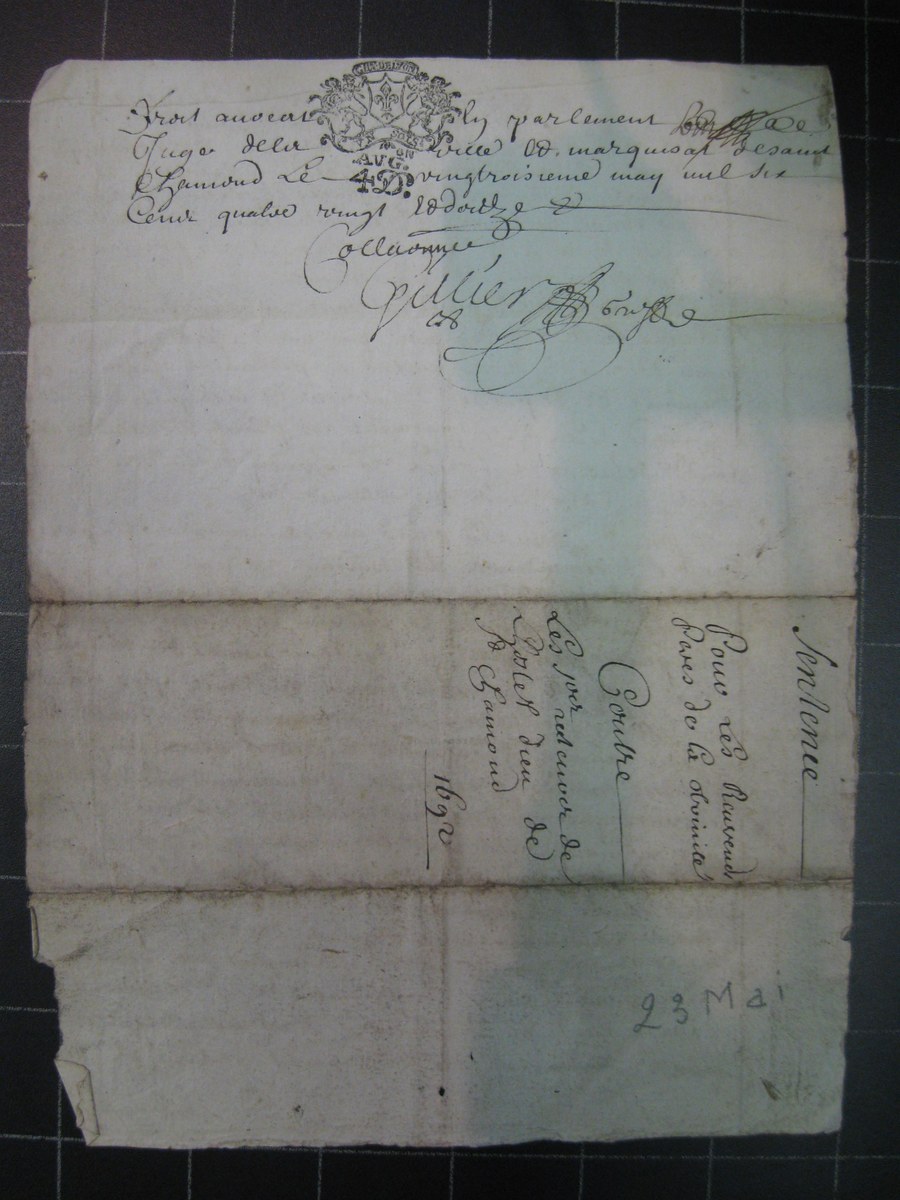 droit avocat en parlement
Juge dela ville et marquisat desaint
Chamond Le vingtroisieme may mil six
Cent quatre vingt et douze
Collationne
AVG.
4D.
Sentence
Pour Les Reverends
Peres de la
Contre
Les de
Lhotel dieu de
St Chamond
1692
23 Mai